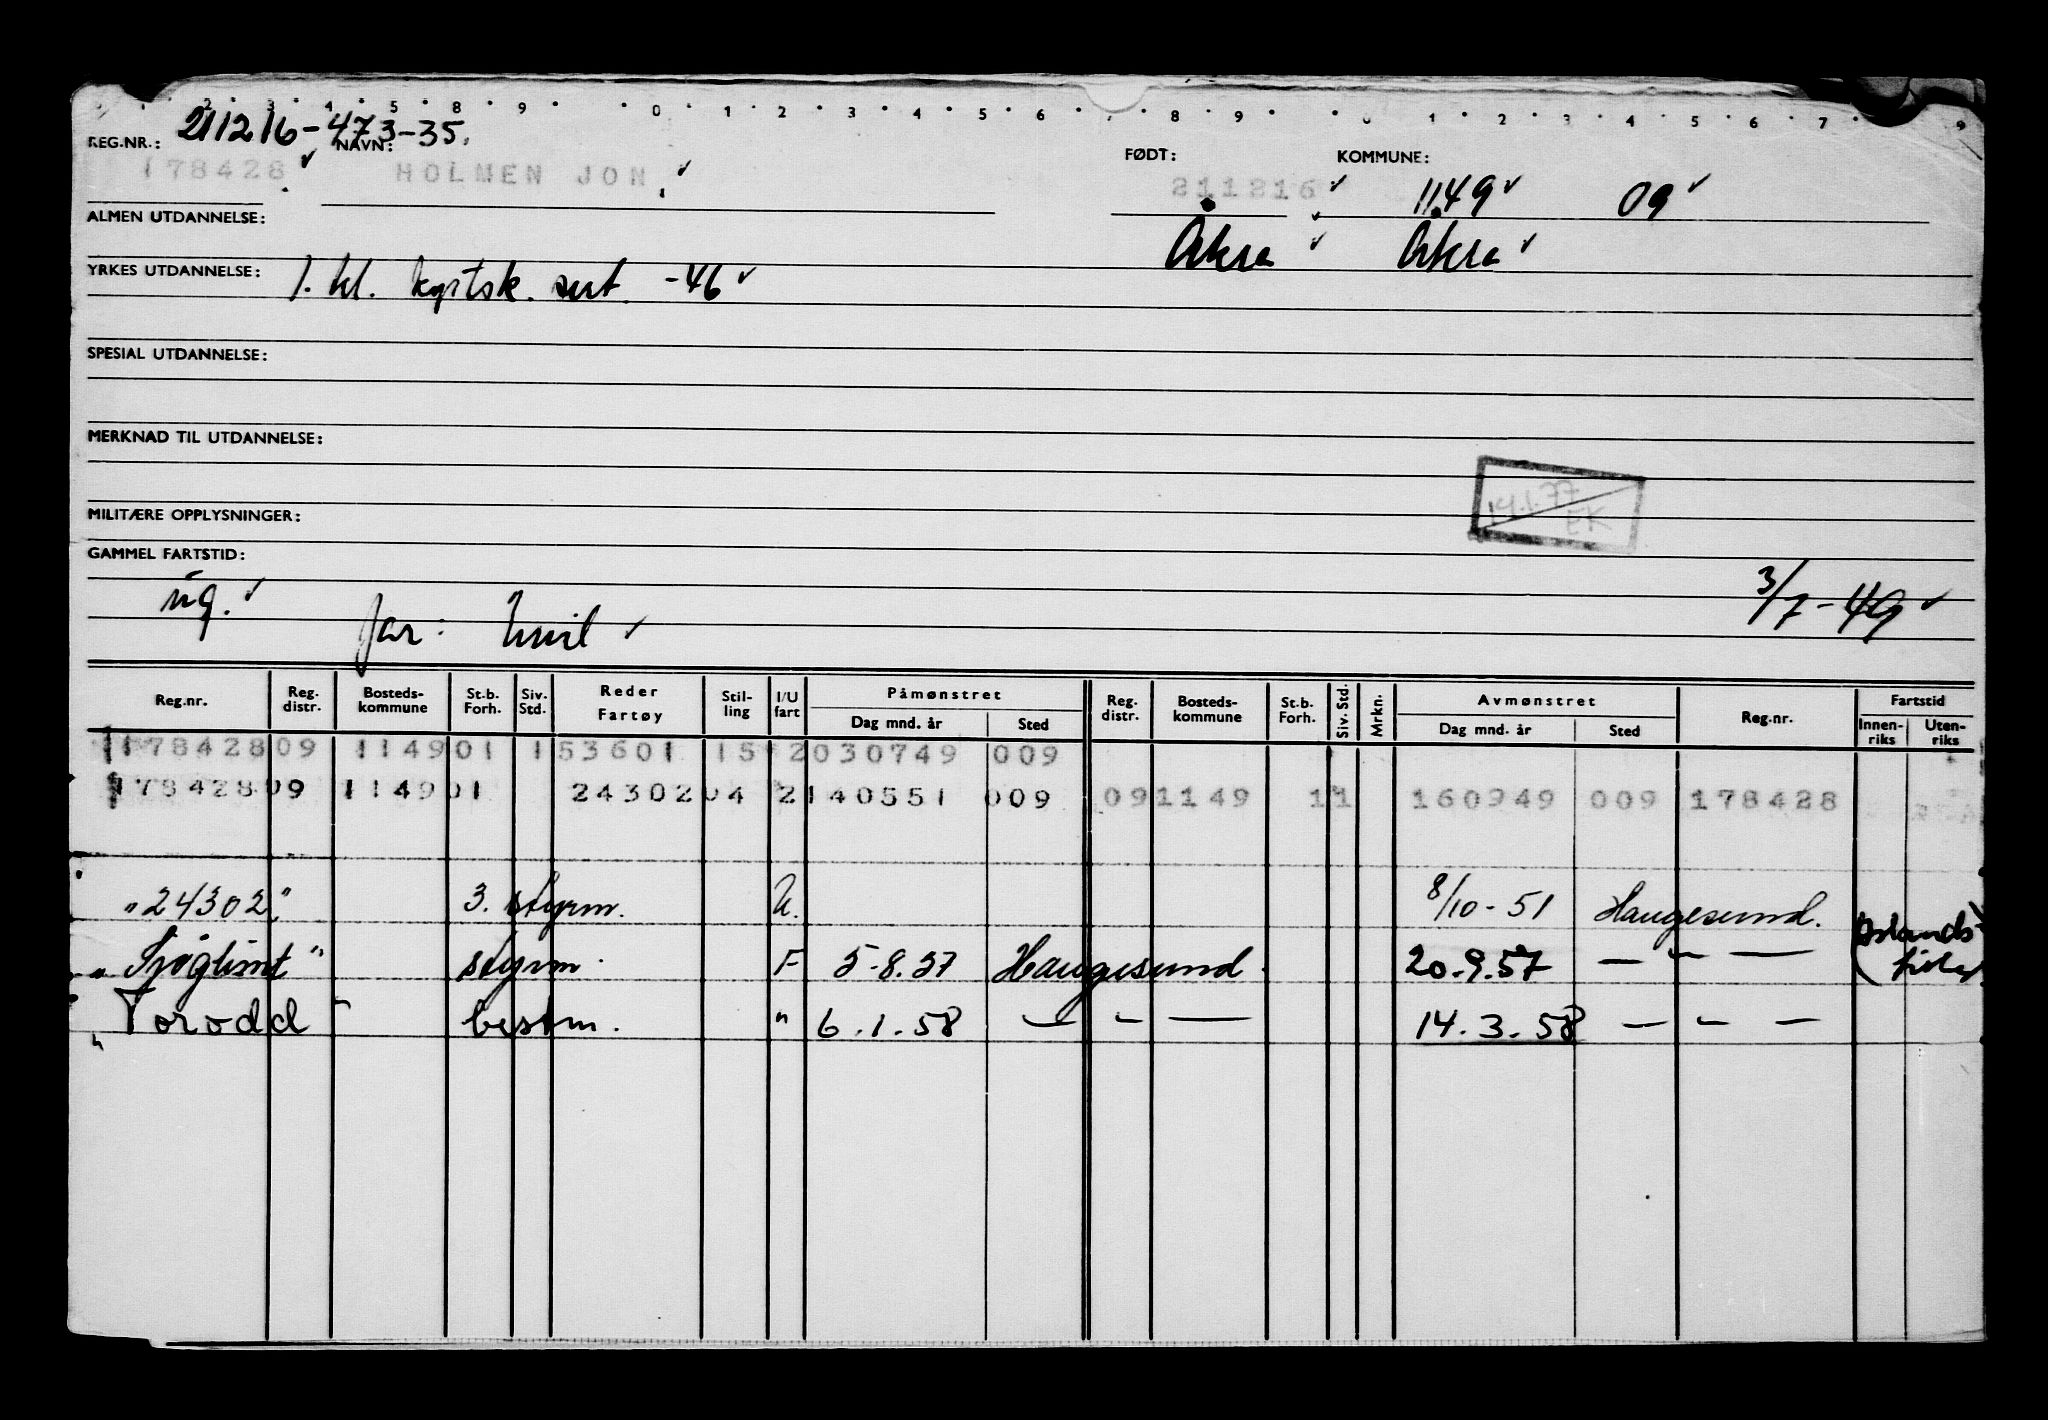 2 3 4 5 8 9 0 1 2 3 4 5 6 8 9 0 1 2 3 4 5 6 7 9
REG.NR.: 211216-473-35. NAVN: FØDT: KOMMUNE:
178428 HOLMEN JON 211216 1149 09
ALMEN UTDANNELSE: Åkra Åkra
YRKES UTDANNELSE: 1. kl. kystsk. sert. -46
SPESIAL UTDANNELSE:
MERKNAD TIL UTDANNELSE:
14.1.77
EK
MILITÆRE OPPLYSNINGER:
GAMMEL FARTSTID:
ug. far: Emil 3/7-49
Reg.nr. Reg. distr. Bosteds-kommune St.b. Forh. Siv. Std. Reder Fartøy Stil-ling I/U fart Påmønstret Dag mnd. år Sted Reg. distr. Bosteds-kommune St.b. Forh. Siv. Std. Mrkn. Avmønstret Dag mnd. år Sted Reg.nr. Fartstid Innen-riks Uten-riks
178428 09 1149 01 1 53601 15 2 030749 009
178428 09 1149 01 24302 04 2 140551 009 09 1149 11 160949 009 178428
"24302" 3. styrm. U. 8/10-51 Haugesund.
"Sjøglimt" styrm. F 5-8.57 Haugesund. 20.9.57 — " — (Islands-fiske)
"Torodd" bestm. " 6.1.58 — " — 14.3.58 — " —